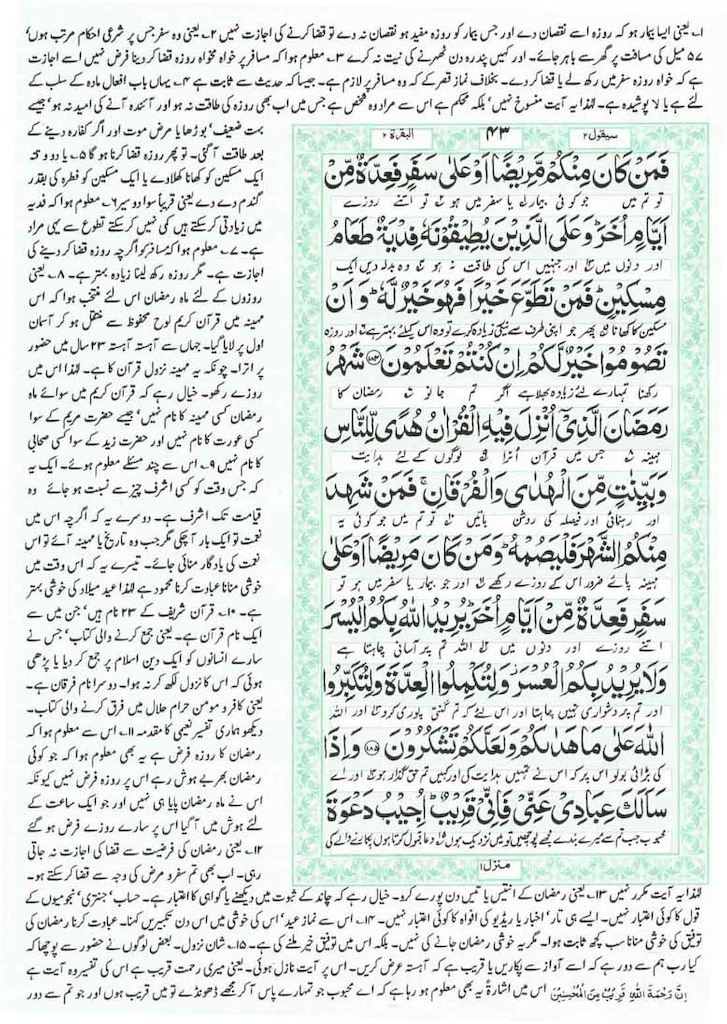 ۱۔ یعنی ایسا بیمار ہو کہ روزہ اسے نقصان دے اور جس بیمار کو روزہ مفید ہو نقصان نہ دے تو قضا کرنے کی اجازت نہیں ۲۔ یعنی وہ سفر جس پر شرعی احکام مرتب ہوں'
۵۷ میل کی مسافت پر گھر سے باہر جائے۔ اور کہیں پندرہ دن ٹھہرنے کی نیت نہ کرے ۳۔ معلوم ہوا کہ مسافر پر خواہ مخواہ روزہ قضا کر دینا فرض نہیں اسے اجازت
ہے کہ خواہ روزہ سفر میں رکھ لے یا قضا کر دے۔ بخلاف نماز قصر کے کہ وہ مسافر پر لازم ہے۔ جیسا کہ حدیث سے ثابت ہے ۴۔ یہاں باب افعال مادہ کے سلب کے
لئے ہے یا لا پوشیدہ ہے۔ لہٰذا یہ آیت منسوخ نہیں' بلکہ محکم ہے اس سے مراد وہ شخص ہے جس میں اب بھی روزہ کی طاقت نہ ہو اور آئندہ آنے کی امید نہ ہو' جیسے
سیقول ۲
۴۳
البقرۃ ۲
فَمَنْ كَانَ مِنْكُمْ مَّرِيْضًا اَوْ عَلٰى سَفَرٍ فَعِدَّةٌ مِّنْ
تو تم میں جو کوئی بیمار یا سفر میں ہو تو اتنے روزے
اَيَّامٍ اُخَرَ وَعَلَى الَّذِيْنَ يُطِيْقُوْنَهٗ فِدْيَةٌ طَعَامُ
اور دنوں میں اور جنہیں اس کی طاقت نہ ہو وہ بدلہ دیں ایک
مِسْكِيْنٍ فَمَنْ تَطَوَّعَ خَيْرًا فَهُوَ خَيْرٌ لَّهٗ وَاَنْ
مسکین کا کھانا پھر جو اپنی طرف سے نیکی زیادہ کرے تو وہ اس کیلئے بہتر ہے اور روزہ
تَصُوْمُوْا خَيْرٌ لَّكُمْ اِنْ كُنْتُمْ تَعْلَمُوْنَ ۱۸۴ شَهْرُ
رکھنا تمہارے لئے زیادہ بھلا ہے اگر تم جانو رمضان کا
رَمَضَانَ الَّذِيْٓ اُنْزِلَ فِيْهِ الْقُرْاٰنُ هُدًى لِّلنَّاسِ
مہینہ جس میں قرآن اترا لوگوں کے لئے ہدایت
وَبَيِّنٰتٍ مِّنَ الْهُدٰى وَالْفُرْقَانِ فَمَنْ شَهِدَ
اور رہنمائی اور فیصلہ کی روشن باتیں تو تم میں جو کوئی یہ
مِنْكُمُ الشَّهْرَ فَلْيَصُمْهُ وَمَنْ كَانَ مَرِيْضًا اَوْ عَلٰى
مہینہ پائے ضرور اس کے روزے رکھے اور جو بیمار یا سفر میں ہو تو
سَفَرٍ فَعِدَّةٌ مِّنْ اَيَّامٍ اُخَرَ يُرِيْدُ اللّٰهُ بِكُمُ الْيُسْرَ
اتنے روزے اور دنوں میں اللہ تم پر آسانی چاہتا ہے
وَلَا يُرِيْدُ بِكُمُ الْعُسْرَ وَلِتُكْمِلُوا الْعِدَّةَ وَلِتُكَبِّرُوا
اور تم پر دشواری نہیں چاہتا اور اس لئے کہ تم گنتی پوری کرو اور اللہ
اللّٰهَ عَلٰى مَا هَدٰىكُمْ وَلَعَلَّكُمْ تَشْكُرُوْنَ ۱۸۵ وَاِذَا
کی بڑائی بولو اس پر کہ اس نے تمہیں ہدایت کی اور کہیں تم حق گذار ہو اور اے
سَاَلَكَ عِبَادِيْ عَنِّيْ فَاِنِّيْ قَرِيْبٌ اُجِيْبُ دَعْوَةَ
محبوب جب تم سے میرے بندے مجھے پوچھیں تو میں نزدیک ہوں دعا قبول کرتا ہوں پکارنے والے کی
منزل ۱
بہت ضعیف' بوڑھا یا مرض موت اور اگر کفارہ دینے کے
بعد طاقت آ گئی۔ تو پھر روزہ قضا کرنا ہو گا ۵۔ یا دو وقتہ
ایک مسکین کو کھانا کھلاوے یا ایک مسکین کو فطرہ کی بقدر
گندم دے دے یعنی قریباً سوا دو سیر ۶۔ معلوم ہوا کہ فدیہ
میں زیادتی کر سکتے ہیں کمی نہیں کر سکتے تطوع سے یہی مراد
ہے۔ ۷۔ معلوم ہوا کہ مسافر کو اگرچہ روزہ قضا کر دینے کی
اجازت ہے۔ مگر روزہ رکھ لینا زیادہ بہتر ہے۔ ۸۔ یعنی
روزوں کے لئے ماہ رمضان اس لئے منتخب ہوا کہ اس
مہینہ میں قرآن کریم لوح محفوظ سے منتقل ہو کر آسمان
اول پر لایا گیا۔ جہاں سے آہستہ آہستہ ۲۳ سال میں حضور
پر اترا۔ چونکہ یہ مہینہ نزول قرآن کا ہے۔ لہٰذا اس میں
روزے رکھو۔ خیال رہے کہ قرآن کریم میں سوائے ماہ
رمضان کسی مہینہ کا نام نہیں' جیسے حضرت مریم کے سوا
کسی عورت کا نام نہیں اور حضرت زید کے سوا کسی صحابی
کا نام نہیں ۹۔ اس سے چند مسئلے معلوم ہوئے۔ ایک یہ
کہ جس وقت کو کسی اشرف چیز سے نسبت ہو جائے وہ
قیامت تک اشرف ہے۔ دوسرے یہ کہ اگرچہ اس میں
نعمت تو ایک بار آ چکی مگر جب وہ تاریخ یا مہینہ آئے تو اس
نعمت کی یادگار منائی جائے۔ تیسرے یہ کہ اس وقت میں
خوشی منانا عبادت کرنا محمود ہے لہٰذا عید میلاد کی خوشی بہتر
ہے۔ ۱۰۔ قرآن شریف کے ۲۳ نام ہیں' جن میں سے
ایک نام قرآن ہے۔ یعنی جمع کرنے والی کتاب' جس نے
سارے انسانوں کو ایک دین اسلام پر جمع کر دیا یا پڑھی
ہوئی کہ اس کا نزول لکھ کر نہ ہوا۔ دوسرا نام فرقان ہے۔
یعنی کافر و مومن حرام حلال میں فرق کرنے والی کتاب۔
دیکھو ہماری تفسیر نعیمی کا مقدمہ ۱۱۔ اس سے معلوم ہوا کہ
رمضان کا روزہ فرض ہے یہ بھی معلوم ہوا کہ جو کوئی
رمضان بھر بے ہوش رہے اس پر روزہ فرض نہیں کیونکہ
اس نے ماہ رمضان پایا ہی نہیں اور جو ایک ساعت کے
لئے ہوش میں آ گیا اس پر سارے روزے فرض ہو گئے
۱۲۔ یعنی رمضان کی فرضیت سے قضا کی اجازت نہ جاتی
رہی۔ اب بھی تم سفر و مرض کی وجہ سے قضا کر سکتے ہو۔
لہٰذا یہ آیت مکرر نہیں ۱۳۔ یعنی رمضان کے انتیس یا تیس دن پورے کرو۔ خیال رہے کہ چاند کے ثبوت میں دیکھنے یا گواہی کا اعتبار ہے۔ حساب' جنتری' نجومیوں کے
قول کا کوئی اعتبار نہیں۔ ایسے ہی تار' اخبار یا ریڈیو کی افواہ کا کوئی اعتبار نہیں۔ ۱۴۔ اس سے نماز عید' اس کی خوشی میں اس دن تکبیریں کہنا۔ عبادت کرنا رمضان کی
توفیق کی خوشی منانا سب کچھ ثابت ہوا۔ مگر یہ خوشی رمضان جانے کی نہیں۔ بلکہ اس میں توفیق خیر ملنے کی ہے۔ ۱۵۔ شان نزول۔ بعض لوگوں نے حضور سے پوچھا کہ
کیا رب ہم سے دور ہے کہ اسے آواز سے پکاریں یا قریب ہے کہ آہستہ عرض کریں۔ اس پر آیت نازل ہوئی۔ یعنی میری رحمت قریب ہے اس کی تفسیر وہ آیت ہے
اِنَّ رَحْمَةَ اللّٰهِ قَرِيْبٌ مِّنَ الْمُحْسِنِيْنَ اس میں اشارۃً یہ بھی معلوم ہو رہا ہے کہ اے محبوب جو تمہارے پاس آ کر مجھے ڈھونڈے تو میں قریب ہوں اور جو تم سے دور